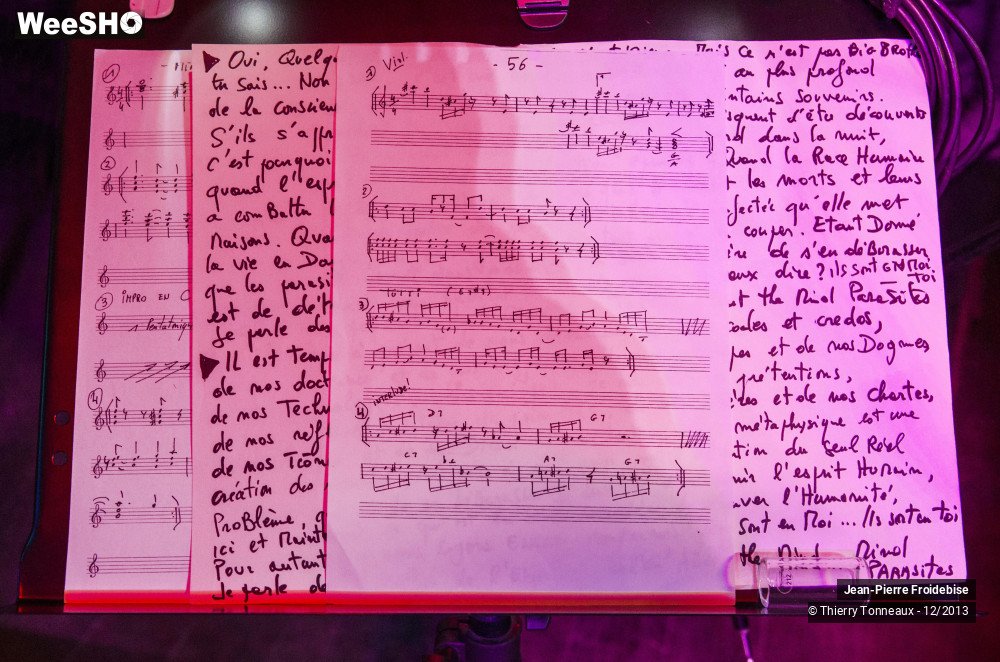 WeeSHO
1
2
3 IMPRO EN C
1 Pentatonique
4
Oui, Quelq
tu sais... Non
de la conscien
S'ils s'affr
C'est pourquoi
quand l'esp
a comBattu
Maisons. Qua
la vie en Do
que les parasi
est de
Je parle des
IL est temp
de nos doct
de nos Techn
de nos réf
de nos
création des
ProBlème, q
ici et Maint
Pour autant
Je parle de
- 56 -
1
2
3
INTERLUDE!
4 D7 G7
C7 A7 G7
Mais Ce n'est pas
au plus profond
ntains souvenirs.
d dans la nuit,
Quand la Race Humaine
t les morts et leurs
fectée qu'elle met
couper. Etant Donné
de s'en déBarasser
eux dire? ils sont EN Moi
toi
et the Mind ParaSites
codes et credos,
et de nos Dogmes
prétentions,
et de nos Chartes,
métaphysique est une
tion du Seul Réel
nir l'esprit Humain,
uver l'Humanité,
sont en Moi... Ils sont en toi
the Mind
PARASites
Jean-Pierre Froidebise
© Thierry Tonneaux - 12/2013